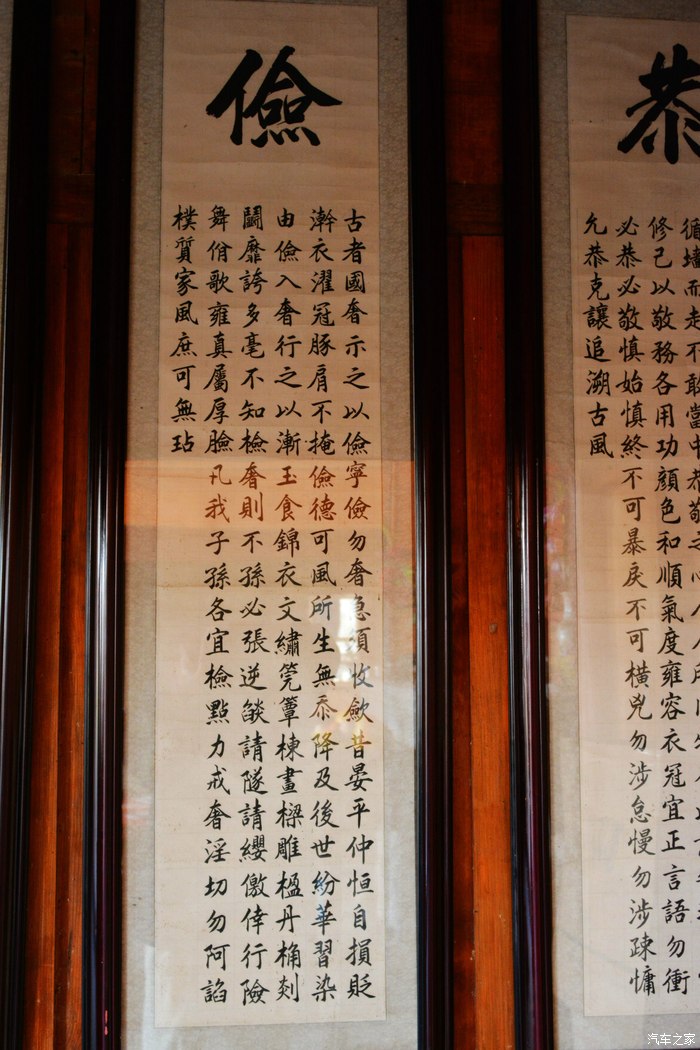 恭
循墻而走不敢當中恭敬之心人人所
修己以敬務各用功顏色和順氣度雍容衣冠宜正言語勿衝
必恭必敬慎始慎終不可暴戾不可橫兇勿涉怠慢勿涉疎慵
允恭克讓追溯古風
儉
古者國奢示之以儉寧儉勿奢急須收斂昔晏平仲恒自損貶
澣衣濯冠豚肩不掩儉德可風所生無忝降及後世紛華習染
由儉入奢行之以漸玉食錦衣文繡筦簟棟畫樑雕楹丹桷剡
鬭靡誇多毫不知檢奢則不孫必張逆燄請隧請纓儌倖行險
舞佾歌雍真屬厚臉凡我子孫各宜檢點力戒奢淫切勿阿諂
樸質家風庶可無玷
汽车之家